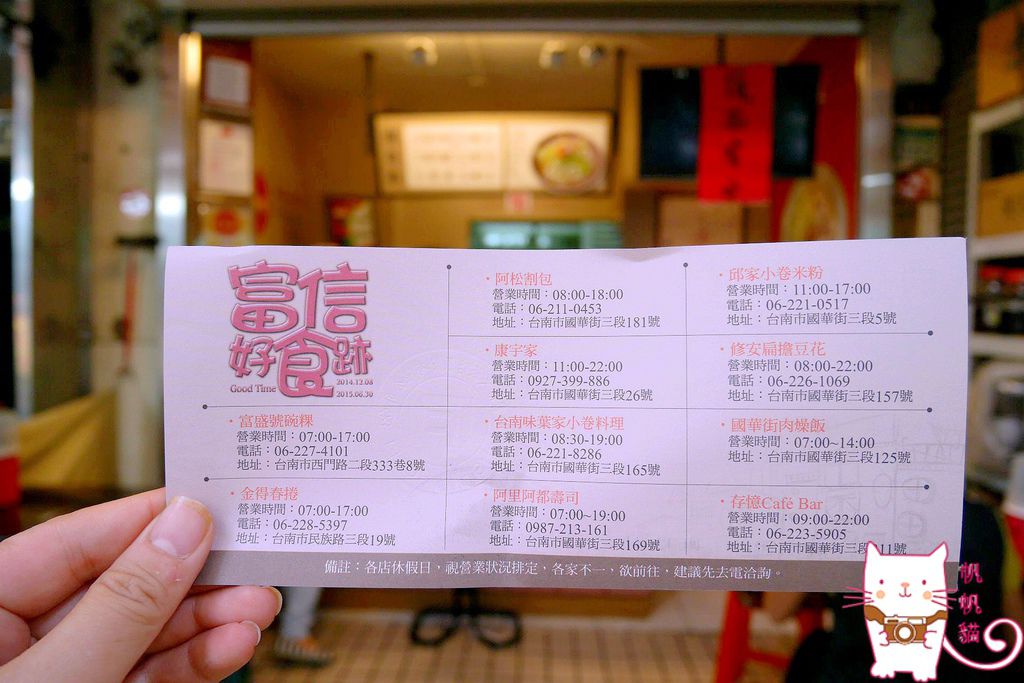 富信
好食跡
Good Time
2014.12.08
2015.06.30
・富盛號碗粿
營業時間：07:00-17:00
電話：06-227-4101
地址：台南市西門路二段333巷8號
・金得春捲
營業時間：07:00-17:00
電話：06-228-5397
地址：台南市民族路三段19號
・阿松割包
營業時間：08:00-18:00
電話：06-211-0453
地址：台南市國華街三段181號
・康宇家
營業時間：11:00-22:00
電話：0927-399-886
地址：台南市國華街三段26號
・台南味葉家小卷料理
營業時間：08:30-19:00
電話：06-221-8286
地址：台南市國華街三段165號
・阿里阿都壽司
營業時間：07:00~19:00
電話：0987-213-161
地址：台南市國華街三段169號
・邱家小卷米粉
營業時間：11:00-17:00
電話：06-221-0517
地址：台南市國華街三段5號
・修安扁擔豆花
營業時間：08:00-22:00
電話：06-226-1069
地址：台南市國華街三段157號
・國華街肉燥飯
營業時間：07:00~14:00
地址：台南市國華街三段125號
・存憶Café Bar
營業時間：09:00-22:00
電話：06-223-5905
地址：台南市國華街三段 11號
備註：各店休假日，視營業狀況排定，各家不一，欲前往，建議先去電洽詢。
帆帆貓